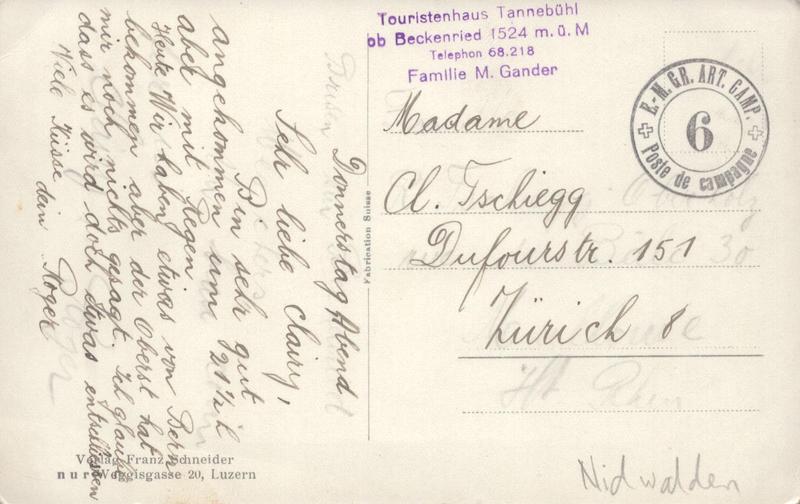 Donnerstag Abend
Sehr liebe Clairy,
Bin sehr gut
angekommen um 21½ h
aber mit Regen
Heute Wir haben etwas von Bern
bekommen aber der Oberst hat
mir noch nichts gesagt. Ich glaube
dass es wird doch etwas entschlossen
Viele Küsse dein Roger
Verlag Franz Schneider
nur Weggisgasse 20, Luzern
Fabrication Suisse
Touristenhaus Tannebühl
ob Beckenried 1524 m.ü.M
Telephon 68.218
Familie M. Gander
E.-M. GR. ART. CAMP.
6
Poste de campagne
Madame
Cl. Tschiegg
Dufourstr. 151
Zürich 8
Nidwalden